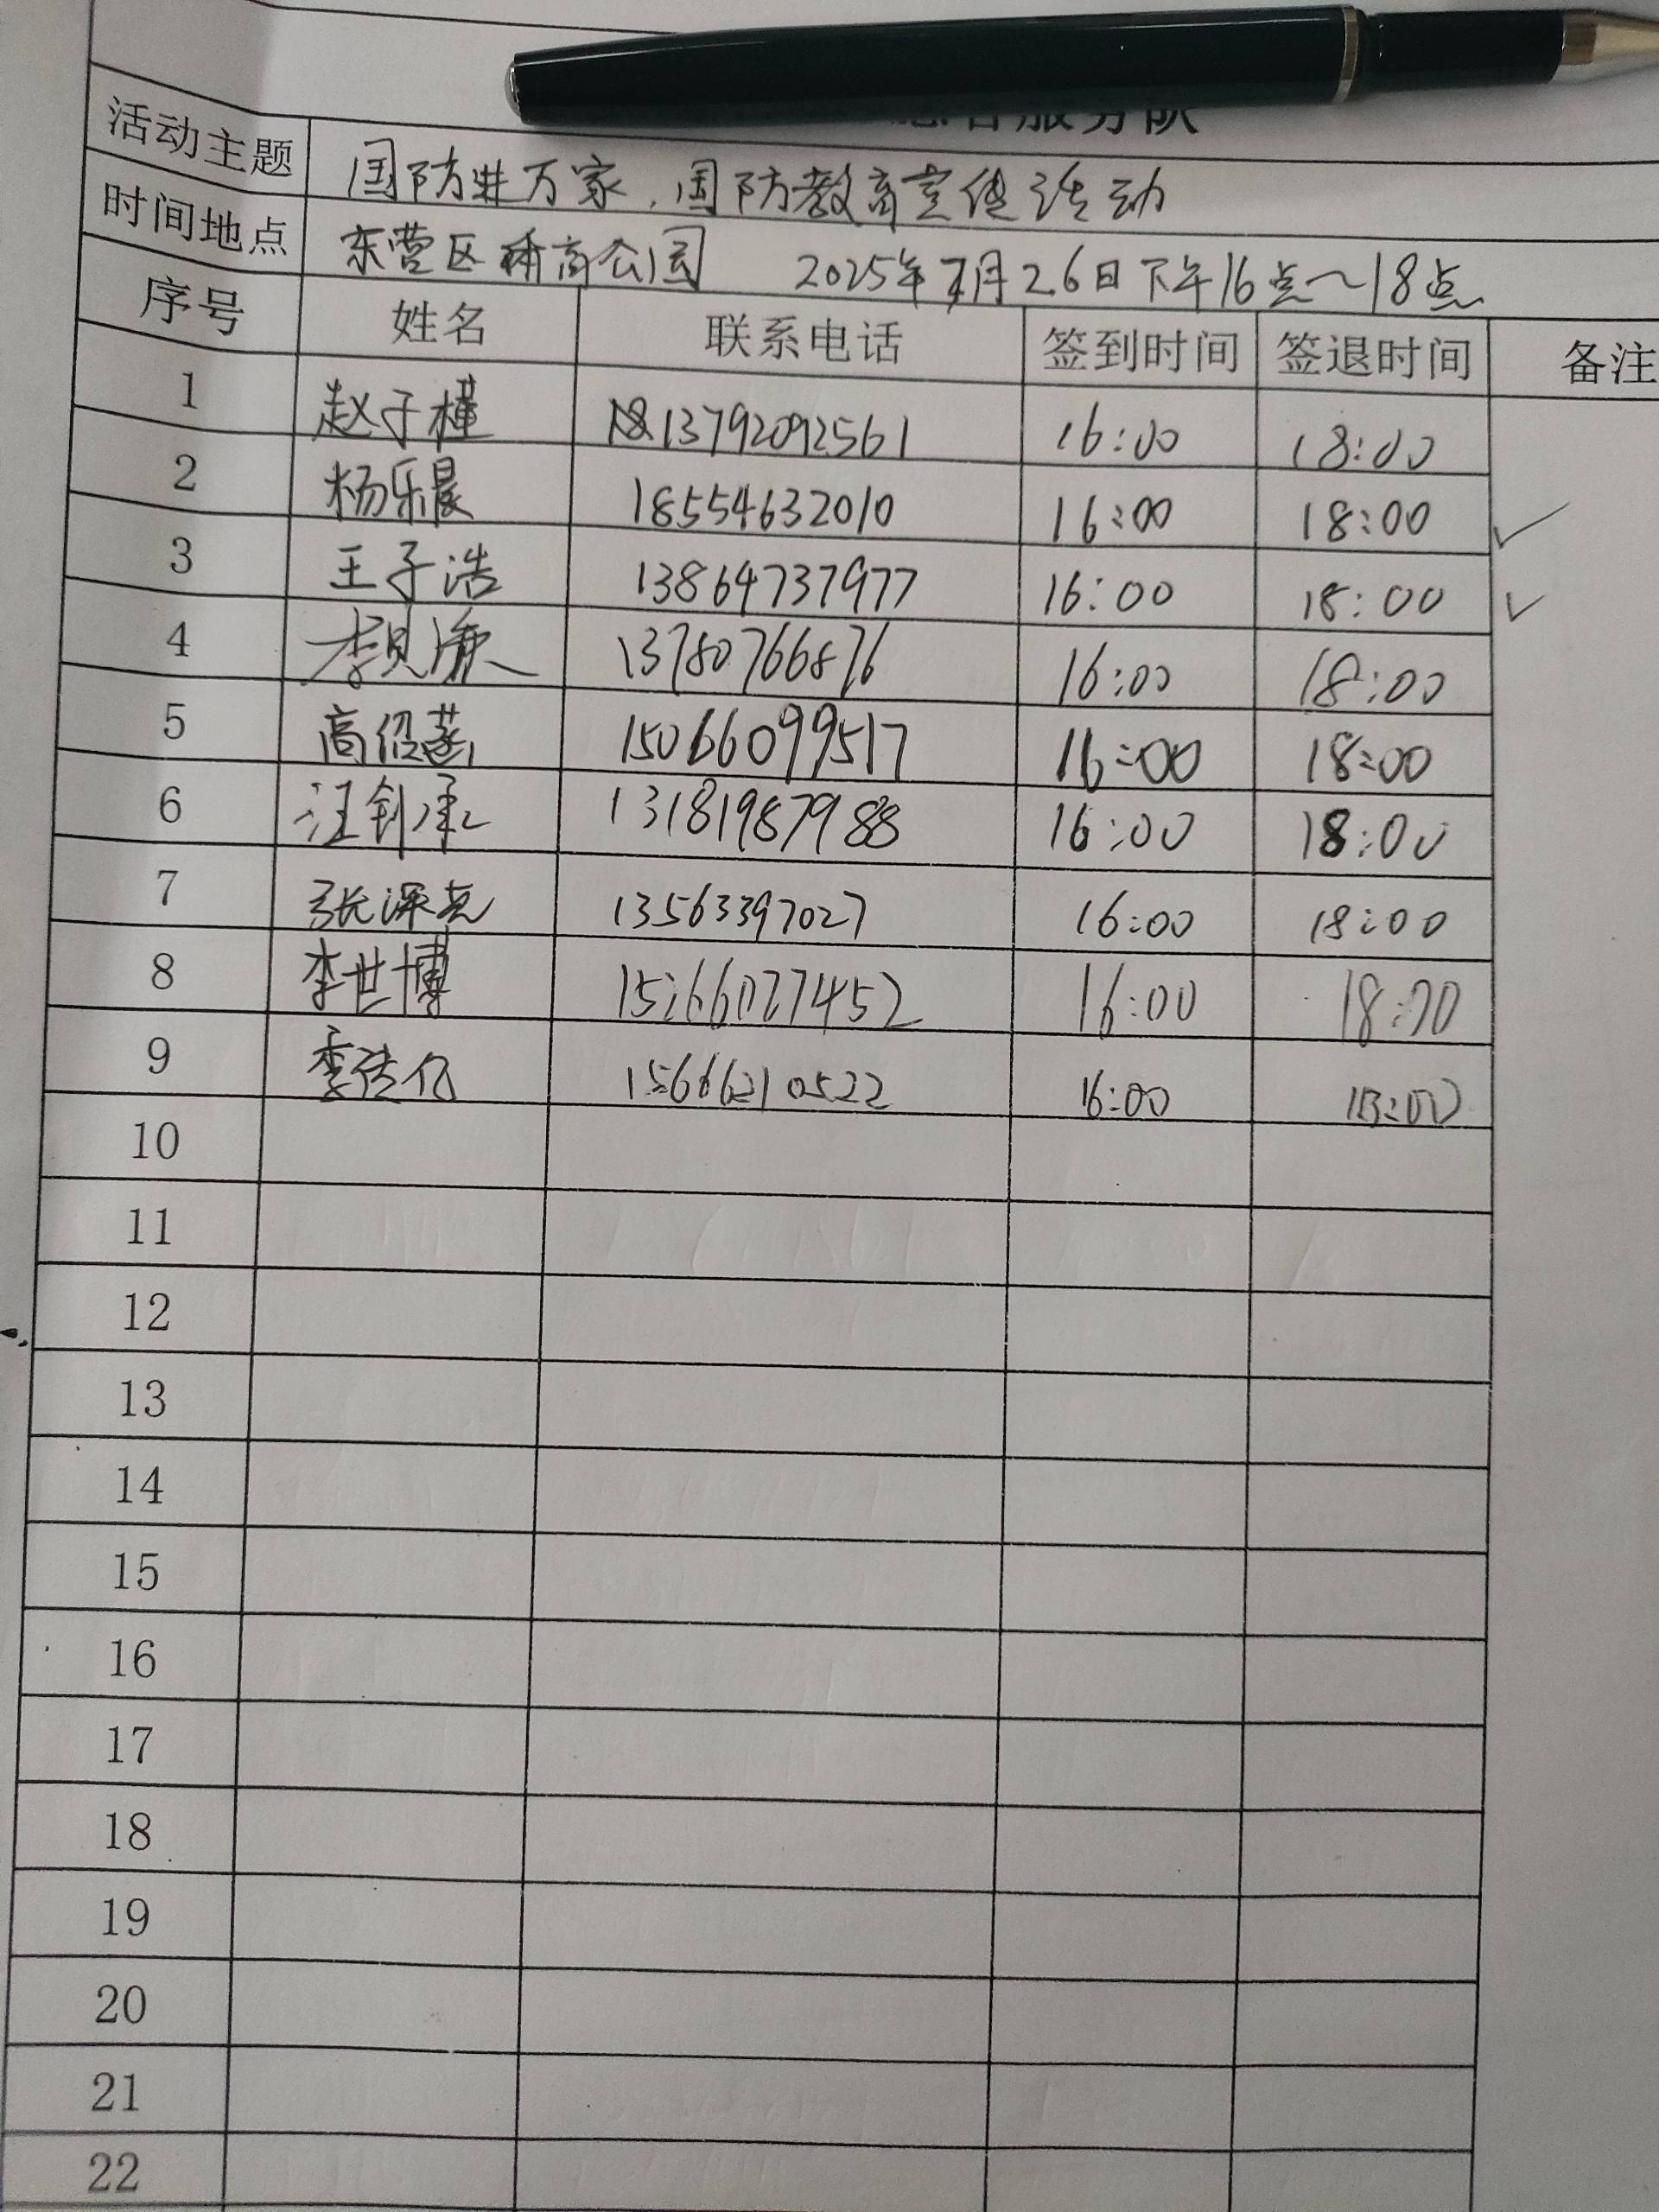 服务队
活动主题 国防进万家,国防教育宣传活动
时间地点 东营区体育公园 2025年7月26日下午16点~18点
序号 姓名 联系电话 签到时间 签退时间 备注
1 赵子槿 13792092561 16:00 18:00
2 杨乐晨 18554632010 16:00 18:00 ✓
3 王子浩 13864737977 16:00 18:00 ✓
4 13780766876 16:00 18:00
5 15066099517 16:00 18:00
6 汪钊承 13181987988 16:00 18:00
7 张深亮 13563397027 16:00 18:00
8 李世博 15266027452 16:00 18:00
9 15666210522 16:00 18:00
10
11
12
13
14
15
16
17
18
19
20
21
22